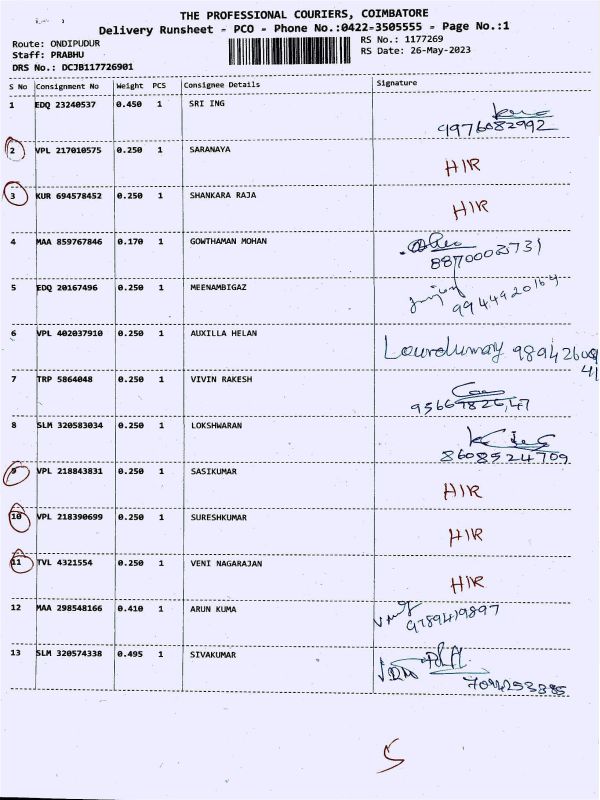 THE PROFESSIONAL COURIERS, COIMBATORE
Delivery Runsheet - PCO - Phone No.:0422-3505555 - Page No.:1
Route: ONDIPUDUR
Staff: PRABHU
DRS No.: DCJB117726901
RS No.: 1177269
RS Date: 26-May-2023
S No Consignment No Weight PCS Consignee Details Signature
1 EDQ 23240537 0.450 1 SRI ING
9976082992
2 VPL 217010575 0.250 1 SARANAYA
HIR
3 KUR 694578452 0.250 1 SHANKARA RAJA
HIR
4 MAA 859767846 0.170 1 GOWTHAMAN MOHAN
5 EDQ 20167496 0.250 1 MEENAMBIGAZ
9944920164
6 VPL 402037910 0.250 1 AUXILLA HELAN
7 TRP 5864048 0.250 1 VIVIN RAKESH
8 SLM 320583034 0.250 1 LOKSHWARAN
8608524709
9 VPL 218843831 0.250 1 SASIKUMAR
HIR
10 VPL 218390699 0.250 1 SURESHKUMAR
HIR
11 TVL 4321554 0.250 1 VENI NAGARAJAN
HIR
12 MAA 298548166 0.410 1 ARUN KUMA
9789419897
13 SLM 320574338 0.495 1 SIVAKUMAR
5